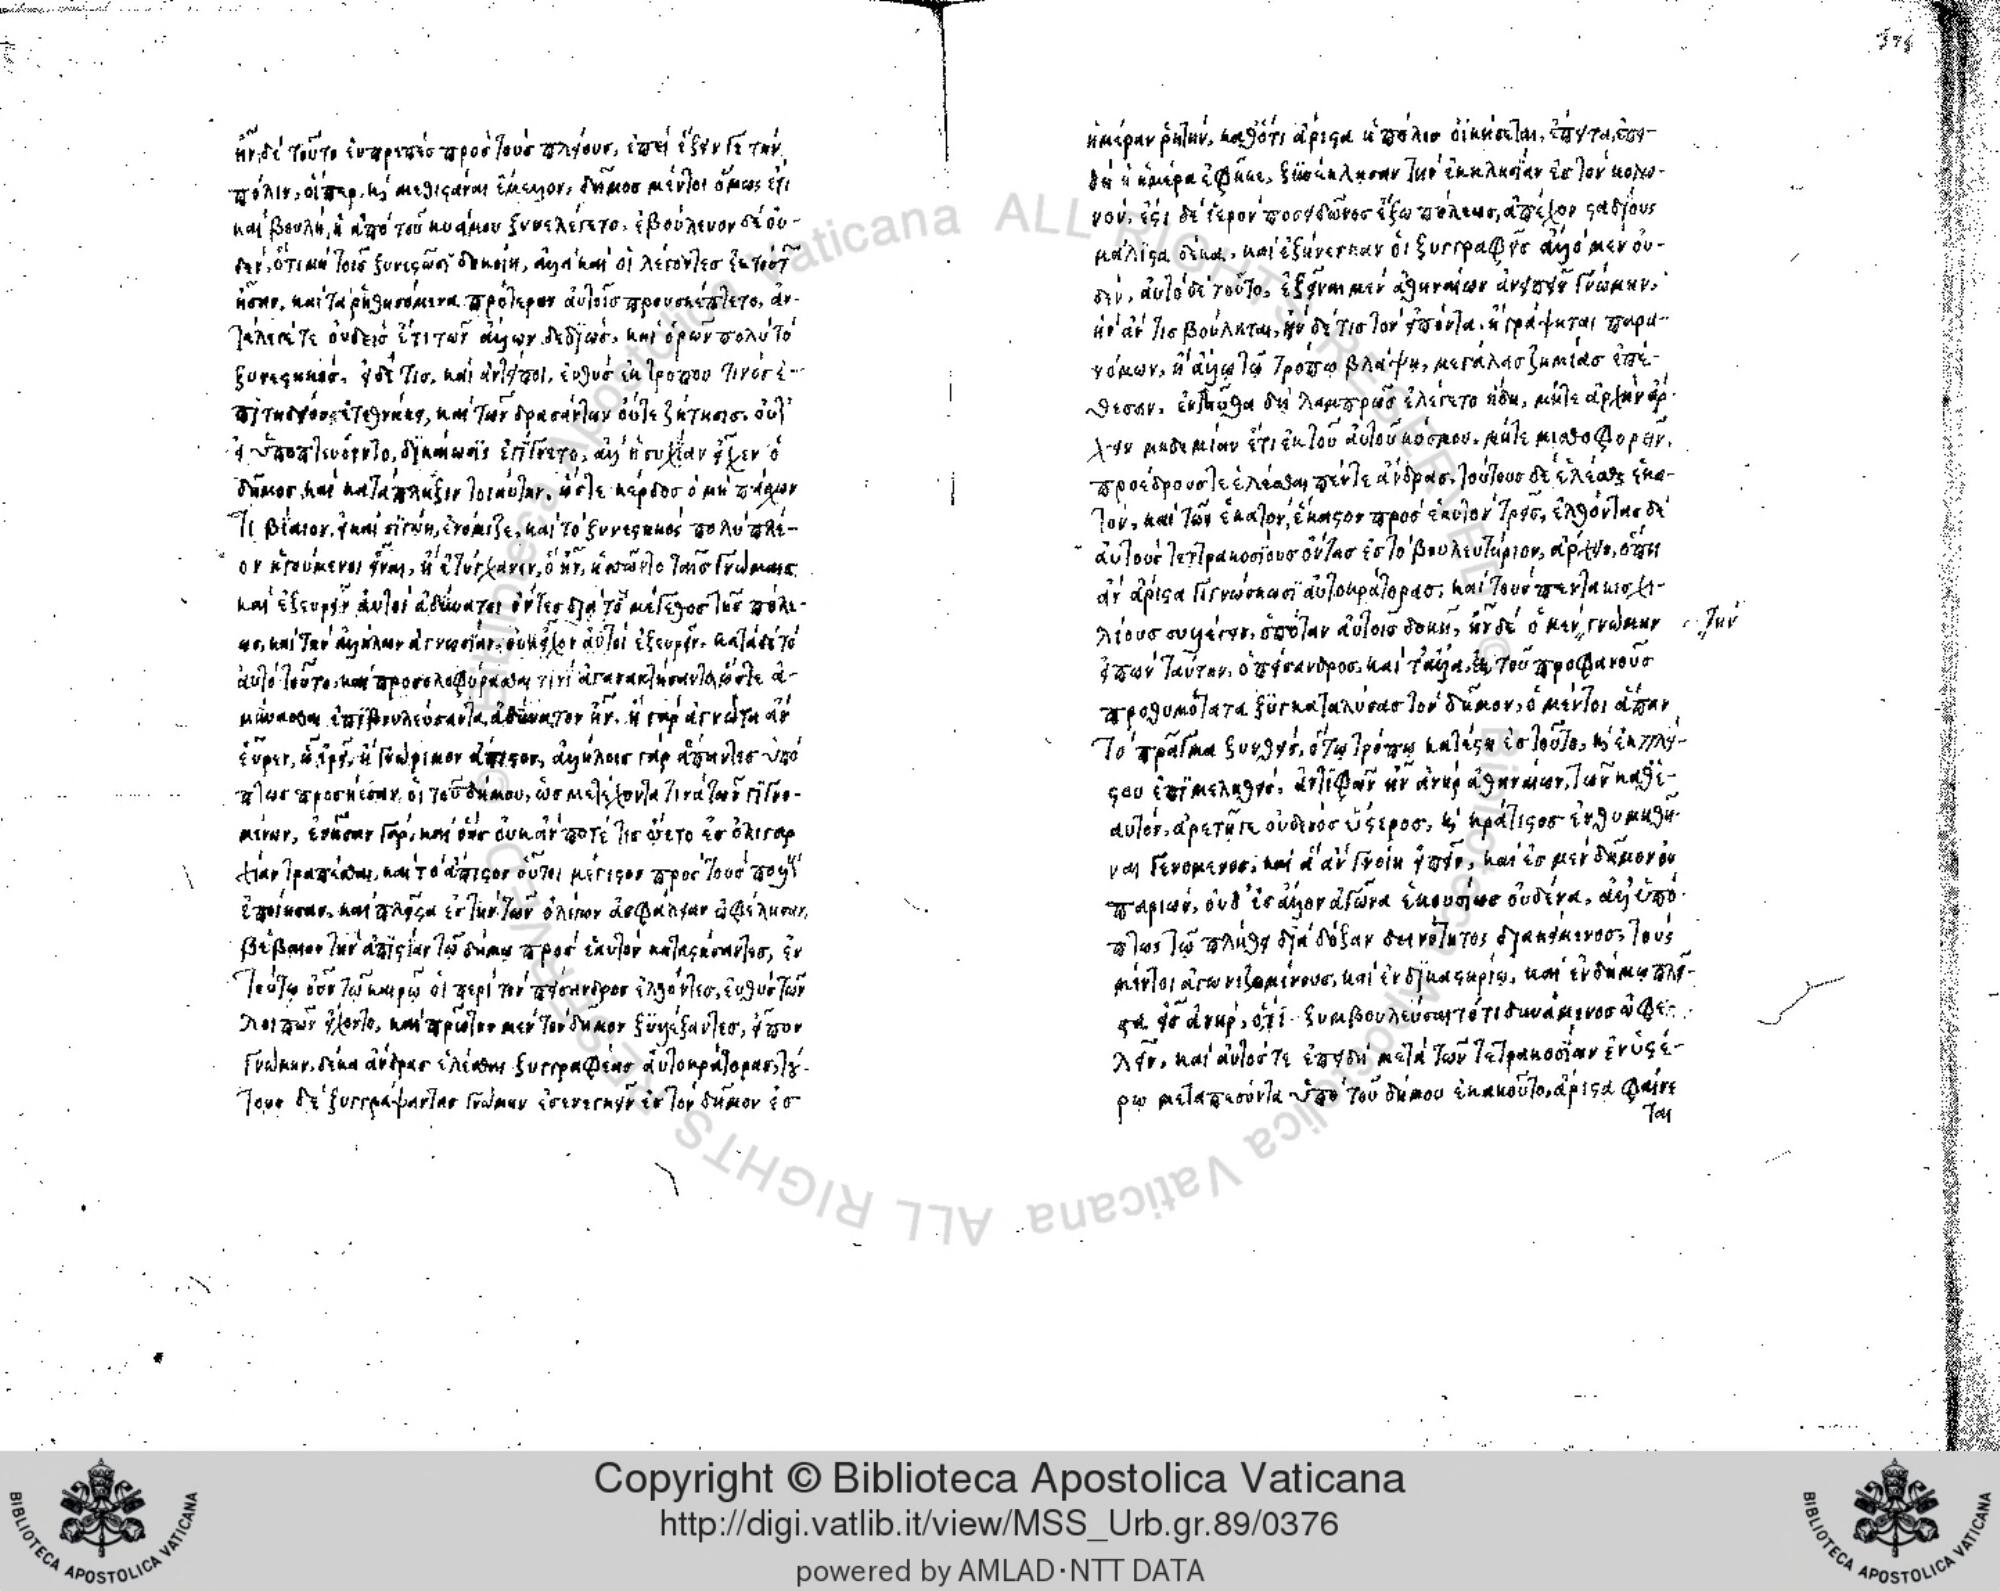 ἦν δὲ τοῦτο εὐπρεπὲς πρὸς τοὺς πλείους, ἐπεὶ ἕξειν γε τὴν
πόλιν, οἵπερ καὶ μεθιστάναι ἔμελλον, δῆμος μέντοι ὅμως ἔτι
καὶ βουλὴ, ἡ ἀπὸ τοῦ κυάμου ξυνελέγετο, ἐβούλευον δὲ οὐ-
δὲν, ὅτι μὴ τοῖς ξυνεστῶσι δοκοίη, ἀλλὰ καὶ οἱ λέγοντες ἐκ τούτων
ἦσαν, καὶ τὰ ῥηθησόμενα πρότερον αὐτοῖς προυσκέπτετο, ἀν-
τέλεγέ τε οὐδεὶς ἔτι τῶν ἄλλων δεδιὼς, καὶ ὁρῶν πολὺ τὸ
ξυνεστηκὸς, εἰ δέ τις, καὶ ἀντείποι, εὐθὺς ἐκ τρόπου τινὸς ἐ-
πιτηδείου ἐτεθνήκει, καὶ τῶν δρασάντων οὔτε ζήτησις, οὔτ'
εἰ ὑποπτεύοιντο, δικαίωσις ἐγίγνετο, ἀλλ' ἡσυχίαν εἶχεν ὁ
δῆμος, καὶ κατάπληξιν τοιαύτην, ὥστε κέρδος ὁ μὴ πάσχων
τι βίαιον, εἰ καὶ σιγώη, ἐνόμιζε, καὶ τὸ ξυνεστηκὸς πολὺ πλέ-
ον ἡγούμενοι εἶναι, ἢ ἐτύγχανεν, ὃ ἦν, ἡσσῶντο ταῖς γνώμαις
καὶ ἐξευρεῖν αὐτοὶ ἀδύνατοι ὄντες διὰ τὸ μέγεθος τῆς πόλε-
ως, καὶ τὴν ἀλλήλων ἀγνωσίαν, οὐκ εἶχον αὐτοὶ ἐξευρεῖν, κατὰ δὲ τὸ
αὐτὸ τοῦτο, καὶ προσολοφύρασθαι τινὶ ἀγανακτήσαντα, ὥστε ἀ-
μύνασθαι ἐπιβουλεύσαντα, ἀδύνατον ἦν, ἢ γὰρ ἀγνῶτα ἂν
εὗρεν, ᾧ ἐρεῖ, ἢ γνώριμον ἄπιστον, ἀλλήλοις γὰρ ἅπαντες ὑπό
πτως προσήεσαν οἱ τοῦ δήμου, ὡς μετέχοντά τινα τῶν γιγνο-
μένων, ἐνῆσαν γὰρ, καὶ οὓς οὐκ ἄν ποτέ τις ᾤετο ἐς ὀλιγαρ
χίαν τραπέσθαι, καὶ τὸ ἄπιστον οὗτοι μέγιστον πρὸς τοὺς πολλοὺς
ἐποίησαν, καὶ πλεῖστα ἐς τὴν τῶν ὀλίγων ἀσφάλειαν ὠφέλησαν,
βέβαιον τὴν ἀπιστίαν τῷ δήμῳ πρὸς ἑαυτὸν καταστήσαντες, ἐν
τούτῳ οὖν τῷ καιρῷ οἱ περὶ τὸν πείσανδρον ἐλθόντες, εὐθὺς τῶν
λοιπῶν εἴχοντο, καὶ πρῶτον μὲν τὸν δῆμον ξυλλέξαντες, εἶπον
γνώμην, δέκα ἄνδρας ἑλέσθαι ξυγγραφέας αὐτοκράτορας, τού-
τους δὲ ξυγγράψαντας γνώμην ἐσενεγκεῖν ἐς τὸν δῆμον ἐς
ἡμέραν ῥητὴν, καθ' ὅτι ἄριστα ἡ πόλις οἰκήσεται, ἔπειτα, ἐπει-
δὴ ἡ ἡμέρα ἐφῆκε, ξυνέκλησαν τὴν ἐκκλησίαν ἐς τὸν κολω-
νὸν, ἔστι δὲ ἱερὸν ποσειδῶνος ἔξω πόλεως, ἀπέχον σταδίους
μάλιστα δέκα, καὶ ἐξήνεγκαν οἱ ξυγγραφεῖς ἄλλο μὲν οὐ-
δὲν, αὐτὸ δὲ τοῦτο, ἐξεῖναι μὲν ἀθηναίων ἀνειπεῖν γνώμην,
ἣν ἄν τις βούληται, ἢν δέ τις τὸν εἰπόντα, ἢ γράψηται παρα-
νόμων, ἢ ἄλλῳ τῳ τρόπῳ βλάψῃ, μεγάλας ζημίας ἐπέ-
θεσαν, ἐνταῦθα δὴ λαμπρῶς ἐλέγετο ἤδη, μήτε ἀρχὴν ἄρ-
χειν μηδεμίαν ἔτι ἐκ τοῦ αὐτοῦ κόσμου, μήτε μισθοφορεῖν,
προέδρους τε ἑλέσθαι πέντε ἄνδρας, τούτους δὲ ἑλέσθαι ἑκα-
τὸν, καὶ τῶν ἑκατὸν, ἕκαστον πρὸς ἑαυτὸν τρεῖς, ἐλθόντας δὲ
αὐτοὺς τετρακοσίους ὄντας ἐς τὸ βουλευτήριον, ἄρχειν, ὅπῃ
ἂν ἄριστα γιγνώσκωσι αὐτοκράτορας, καὶ τοὺς πεντακισχι-
λίους ξυλλέγειν, ὁπόταν αὐτοῖς δοκῇ, ἦν δὲ ὁ μὲν γνώμην τὴν
εἰπὼν ταύτην, ὁ πείσανδρος, καὶ τἆλλα, ἐκ τοῦ προφανοῦς
προθυμότατα ξυγκαταλύσας τὸν δῆμον, ὁ μέντοι ἅπαν
τὸ πρᾶγμα ξυνθεὶς, ὅτῳ τρόπῳ κατέστη ἐς τοῦτο, καὶ ἐκ πλεί-
στου ἐπιμεληθεὶς, ἀντιφῶν ἦν ἀνὴρ ἀθηναίων, τῶν καθ' ἑ-
αυτὸν, ἀρετῇ τε οὐδενὸς ὕστερος, καὶ κράτιστος ἐνθυμηθῆ-
ναι γενόμενος, καὶ ἃ ἂν γνοίη εἰπεῖν, καὶ ἐς μὲν δῆμον οὐ
παριὼν, οὐδ' ἐς ἄλλον ἀγῶνα ἑκουσίως οὐδένα, ἀλλ' ὑπό
πτως τῷ πλήθει διὰ δόξαν δεινότητος διακείμενος, τοὺς
μέντοι ἀγωνιζομένους, καὶ ἐν δικαστηρίῳ, καὶ ἐν δήμῳ πλεῖ-
στα εἷς ἀνὴρ, ὅτι ξυμβουλεύσαιτό τι δυνάμενος ὠφε-
λεῖν, καὶ αὐτός τε ἐπειδὴ μετὰ τῶν τετρακοσίων ἐν ὑστέ-
ρῳ μεταπεσόντα ὑπὸ τοῦ δήμου ἐκακοῦτο, ἄριστα φαίνε
ται
Copyright © Biblioteca Apostolica Vaticana
http://digi.vatlib.it/view/MSS_Urb.gr.89/0376
powered by AMLAD·NTT DATA